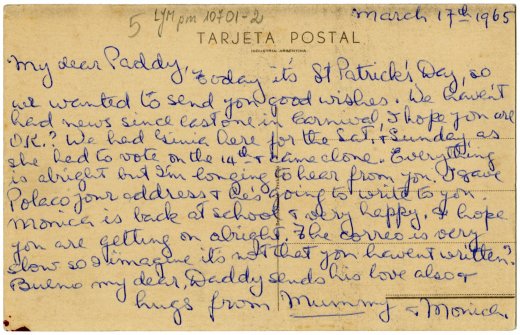 5 LYM pm 10701-2
March 17th 1965
TARJETA POSTAL
INDUSTRIA ARGENTINA
My dear Paddy, Today it's St Patrick's Day, so
we wanted to send you good wishes. We haven't
had news since last one in Carnival, I hope you are
OK.? We had Ginia here for the Sat. & Sunday, as
she had to vote on the 14th & came alone. Everything
is alright but I'm longing to hear from you. I gave
Polaco your address & he's going to write to you.
Monica is back at school & very happy. I hope
you are getting on alright. The correo is very
slow so I imagine it's not that you havent written?
Bueno my dear, Daddy sends his love also &
hugs from Mummy & Monica.